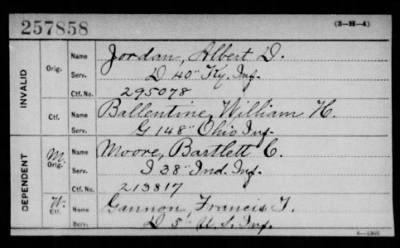 257858
(3-H-4)
INVALID
Orig.
Name Jordan, Albert D.
Serv. D 40" Ky. Inf.
Ctf. No. 295078
Ctf.
Name Ballentine, William H.
Serv. G 148" Ohio Inf.
DEPENDENT
M. Orig.
Name Moore, Bartlett C.
Serv. I 38" Ind. Inf.
Ctf. No. 213817
W. Ctf.
Name Gannon, Francis T.
Serv. D 5" U. S. Inf.